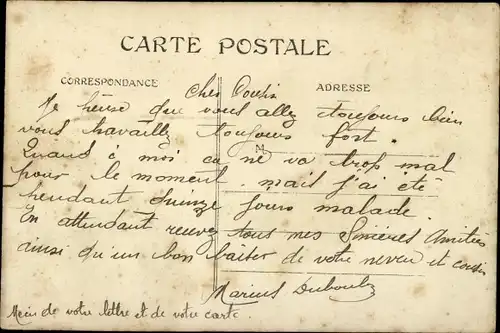 CARTE POSTALE
CORRESPONDANCE
ADRESSE
Cher Cousin
Je pense que vous allez toujours bien
vous travaillez toujours fort.
Quand à moi ca ne va trop mal
pour le moment. mais j'ai été
pendant quinze jours malade.
En attendant recevez tous mes Sincères Amitiés
ainsi qu'un bon baiser de votre neveu et cousin
Marius
de votre lettre et de votre carte.